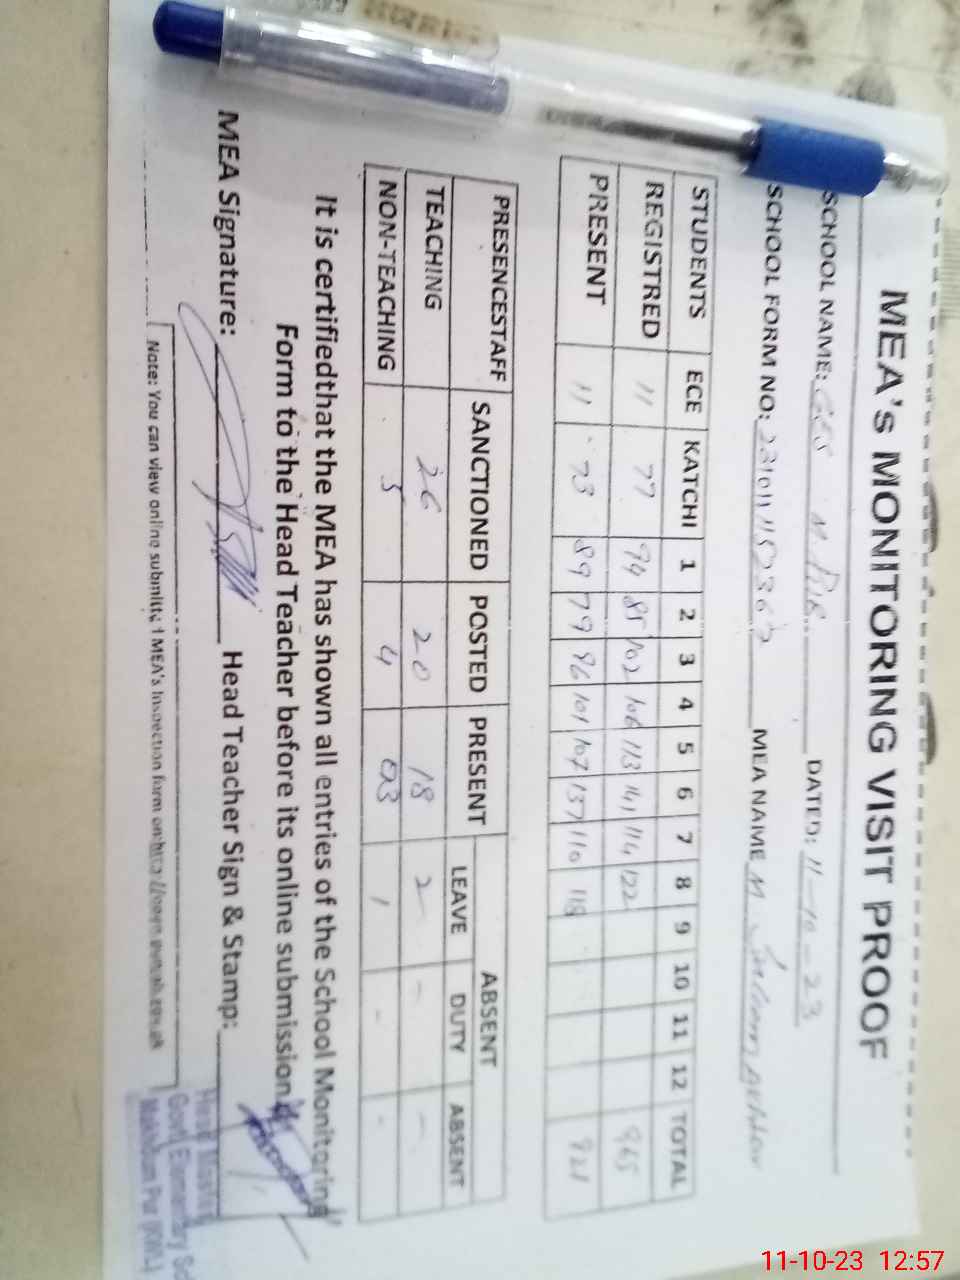 MEA's MONITORING VISIT PROOF
SCHOOL NAME: GES M. PUR. DATED: 11-10-23
SCHOOL FORM NO: MEA NAME M
STUDENTS ECE KATCHI 1 2 3 4 5 6 7 8 9 10 11 12 TOTAL
REGISTRED 11 77 94 85 102 106 113 141 114 122 965
PRESENT 11 73 89 79 96 101 107 137 110 118 921
PRESENCESTAFF SANCTIONED POSTED PRESENT ABSENT
LEAVE DUTY ABSENT
TEACHING 26 20 18 2 - -
NON-TEACHING 5 4 03 1 - -
It is certifiedthat the MEA has shown all entries of the School Monitoring
Form to the Head Teacher before its online submission.
MEA Signature: Head Teacher Sign & Stamp:
Note: You can view online submitted MEA's Inspection form on
Head Master
Govt. Elementary Sc
Makhdum Pur (KWL)
11-10-23 12:57